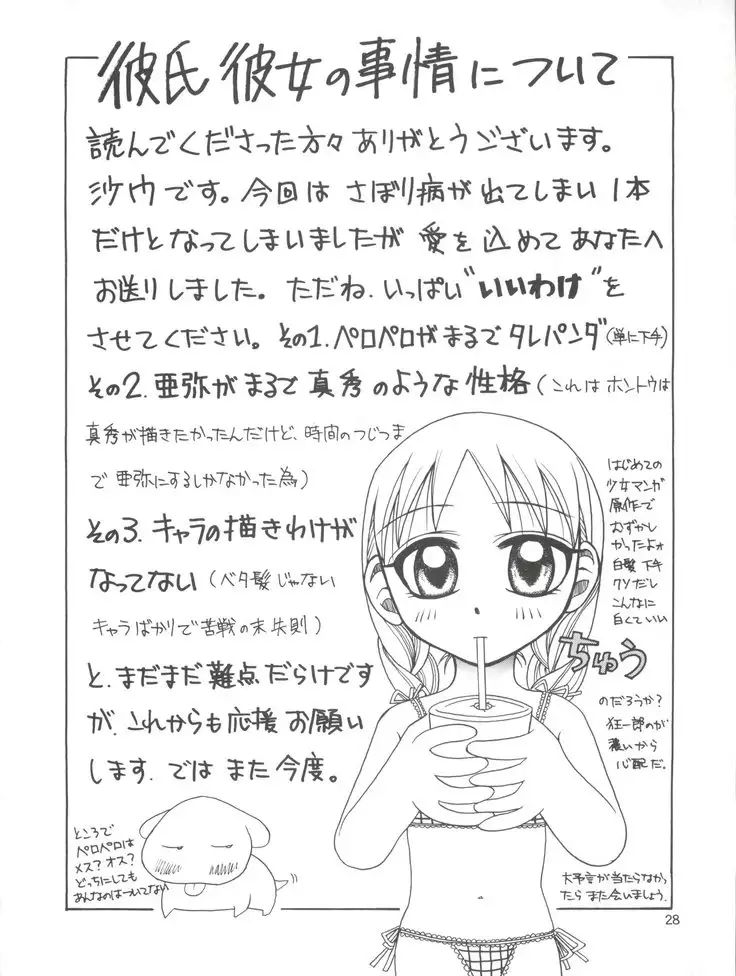 彼氏彼女の事情について
読んでくださった方々ありがとうございます。
沙ウです。今回は さぼり病が出てしまい1本
だけとなってしまいましたが 愛を込めてあなたへ
お送りしました。ただね.いっぱい"いいわけ"を
させてください。その1.ペロペロがまるでタレパンダ(単に下手)
その2.亜弥がまるで真秀のような性格(これはホントウは
真秀が描きたかったんだけど、時間のつじつま
で亜弥にするしかなかった為)
その3.キャラの描きわけが
なってない(ベタ髪じゃない
キャラばかりで苦戦の末失則)
と.まだまだ難点だらけです
が.これからも応援お願い
します.では また今度。
はじめての
少女マンガ
原作で
むずかし
かったよォ
白髪下手
クソだし
こんなに
白くていい
のだろうか?
狂一郎のが
濃いから
心配だ。
ちゅう
ところで
ペロペロは
メス?オス?
どっちにしても
あんなのはついてない
大予言が当たらなかっ
たら また会いましょう.
28